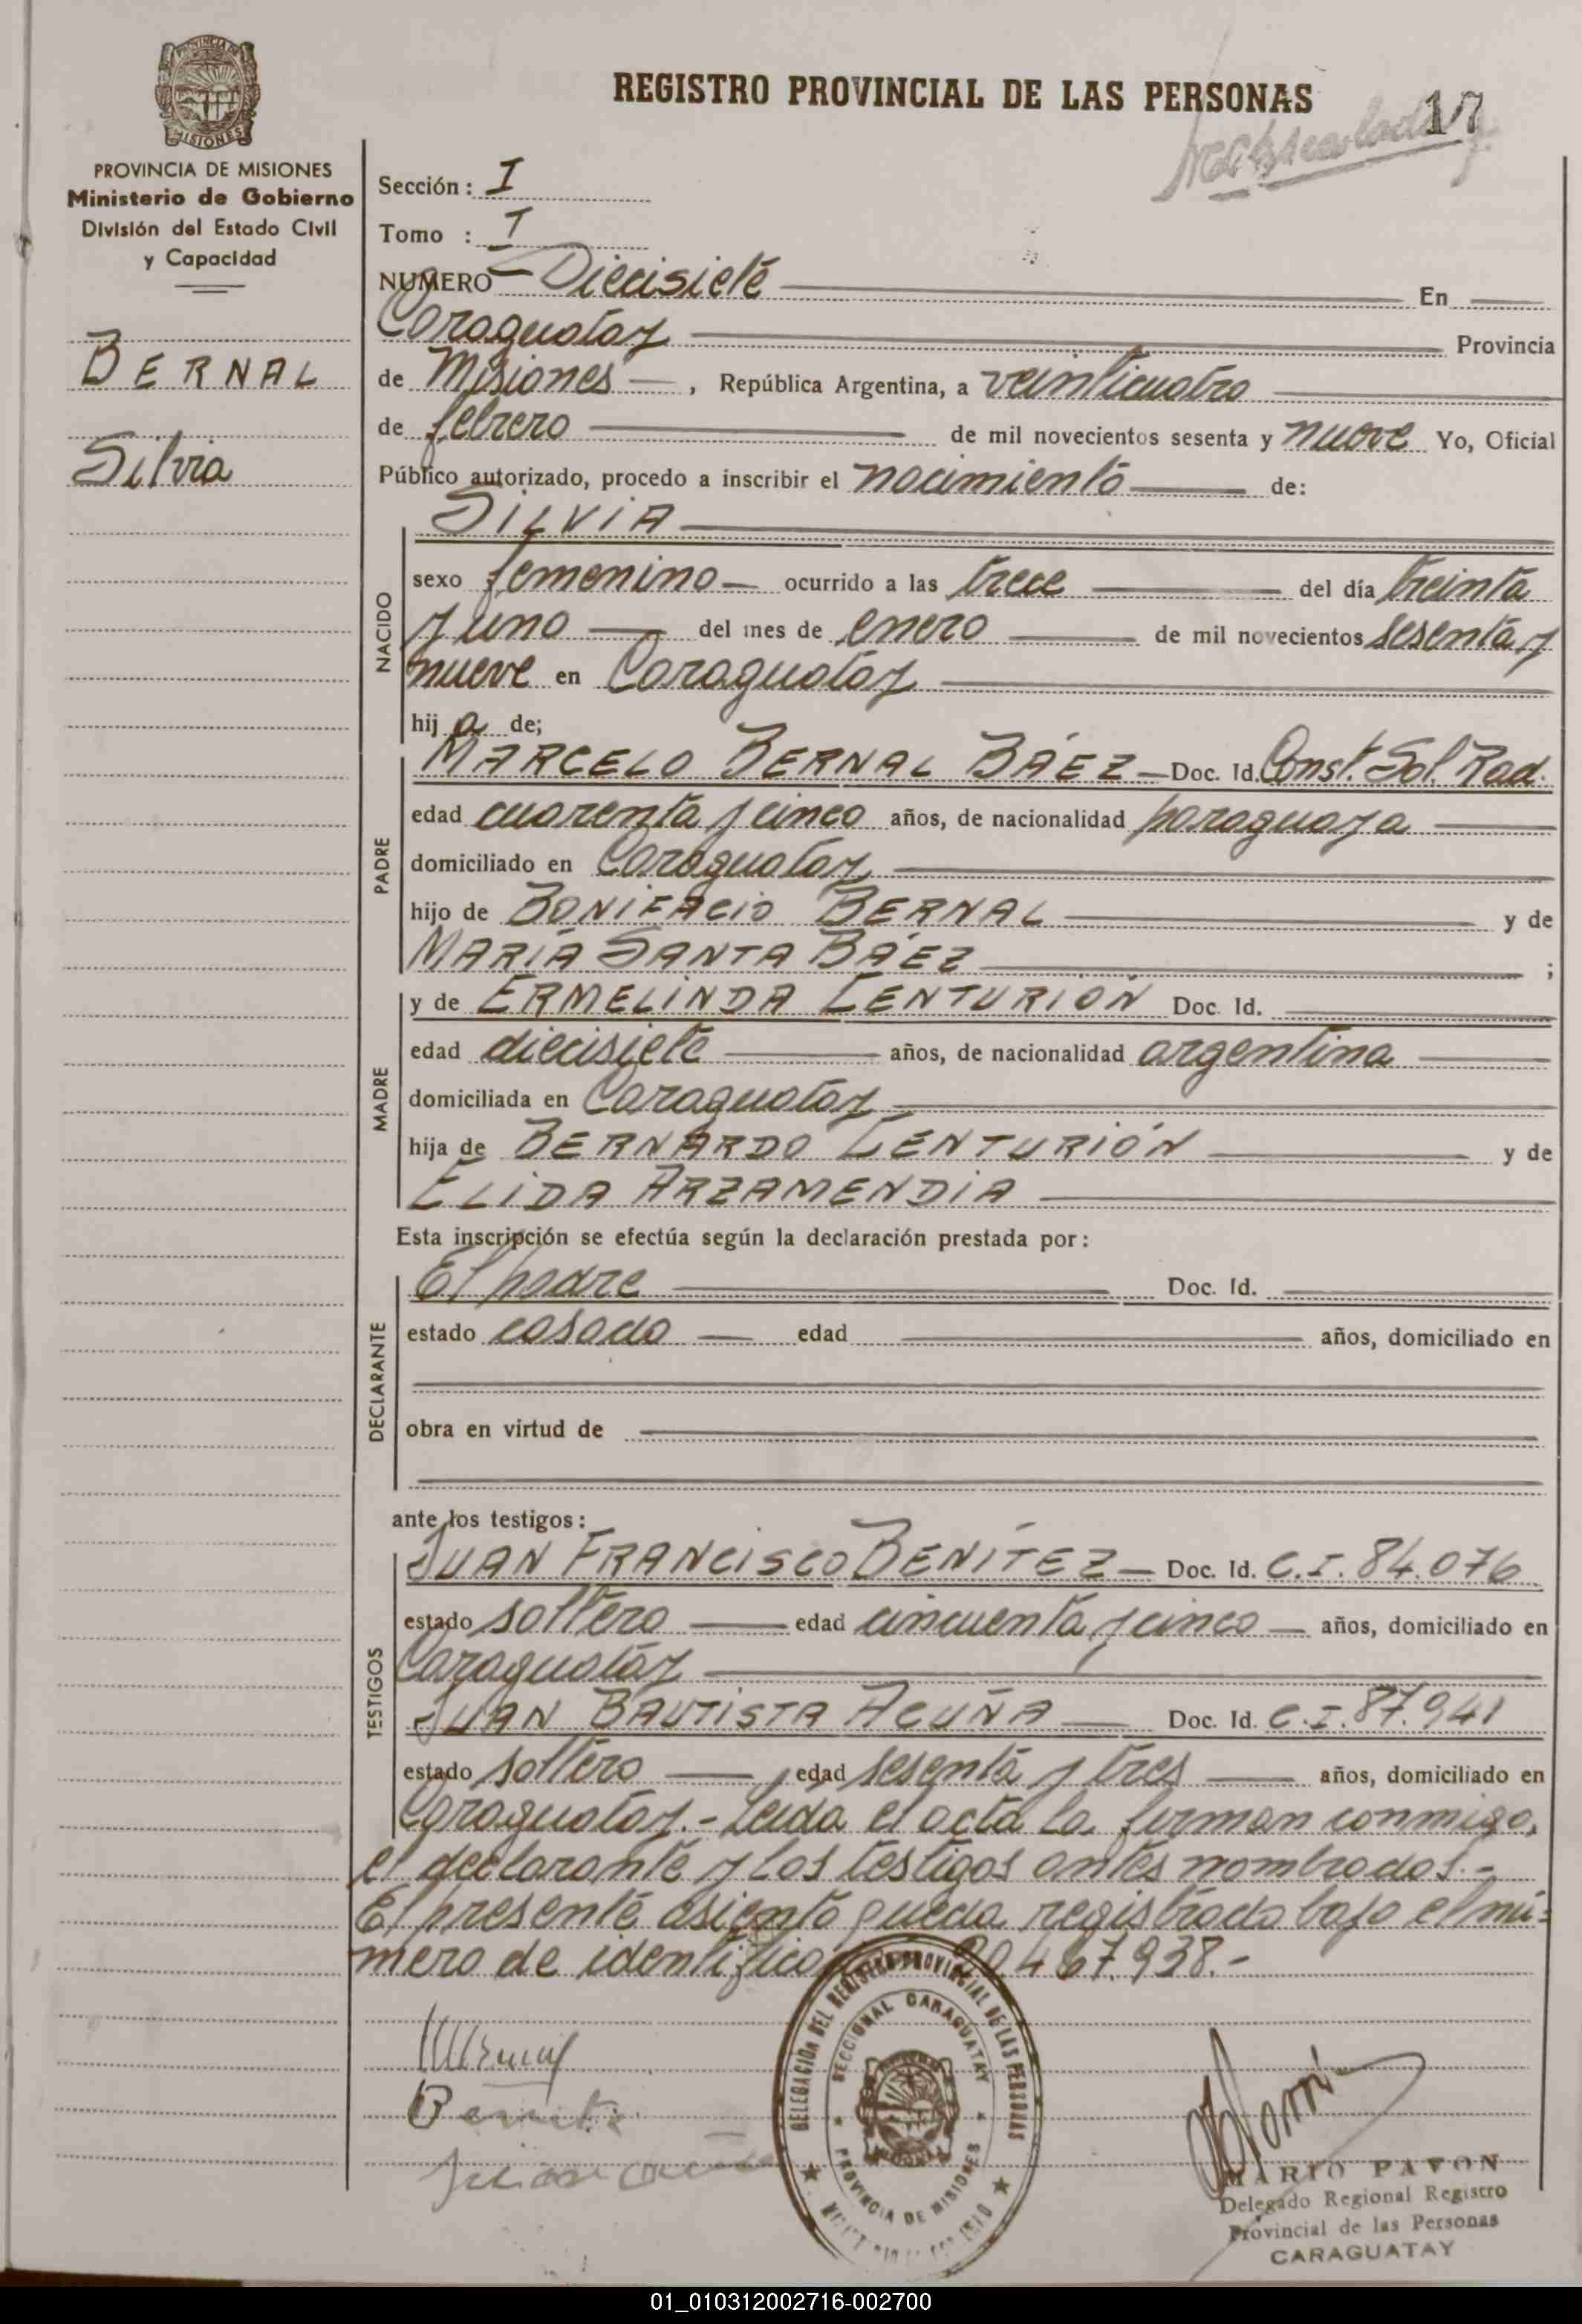 REGISTRO PROVINCIAL DE LAS PERSONAS
17
PROVINCIA DE MISIONES
Ministerio de Gobierno
División del Estado Civil
y Capacidad
BERNAL
Silvia
Sección: I
Tomo : I
NUMERO Diecisiete En
Caraguatay Provincia
de Misiones, República Argentina, a veinticuatro
de febrero de mil novecientos sesenta y nueve Yo, Oficial
Público autorizado, procedo a inscribir el nacimiento de:
SILVIA
NACIDO
sexo femenino ocurrido a las trece del día treinta
y uno del mes de enero de mil novecientos sesenta y
nueve en Caraguatay
hij a de;
PADRE
MARCELO BERNAL BÁEZ Doc. Id. Const. Sol. Rad.
edad cuarenta y cinco años, de nacionalidad paraguaya
domiciliado en Caraguatay
hijo de BONIFACIO BERNAL y de
MARÍA SANTA BÁEZ ;
MADRE
y de ERMELINDA CENTURIÓN Doc. Id.
edad diecisiete años, de nacionalidad argentina
domiciliada en Caraguatay
hija de BERNARDO CENTURIÓN y de
ELIDA ARZAMENDIA
Esta inscripción se efectúa según la declaración prestada por:
DECLARANTE
El padre Doc. Id.
estado casado edad años, domiciliado en
obra en virtud de
ante los testigos:
TESTIGOS
JUAN FRANCISCO BENÍTEZ Doc. Id. C.I. 84.076
estado soltero edad cincuenta y cinco años, domiciliado en
Caraguatay
JUAN BAUTISTA ACUÑA Doc. Id. C.I. 87.941
estado soltero edad sesenta y tres años, domiciliado en
Caraguatay.- Leída el acta la firman conmigo,
el declarante y los testigos antes nombrados.-
El presente asiento queda registrado bajo el nú-
mero de identificación 20.467.938.-
DELEGACION DEL REGISTRO PROVINCIAL DE LAS PERSONAS
SECCIONAL CARAGUATAY
PROVINCIA DE MISIONES
MARIO PAVON
Delegado Regional Registro
Provincial de las Personas
CARAGUATAY
01_010312002716-002700